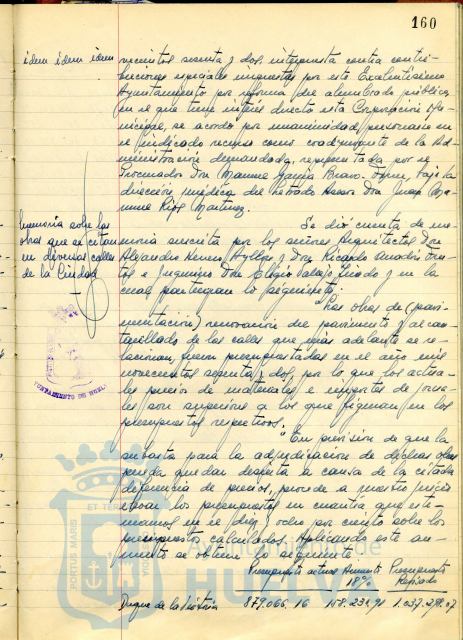 160
idem idem idem
vecientos sesenta y dos, interpuesta contra contri-
buciones especiales impuestas por este Excelentísimo
Ayuntamiento por reforma del alumbrado público
en el que tiene interés directo esta Corporación Mu-
nicipal, se acordó por unanimidad, personarse en
el indicado recurso como coadyuvante de la Ad-
ministración demandada, representada por el
Procurador Don Manuel García Bravo bajo la
dirección jurídica del Letrado Asesor Don Juan Ma-
nuel Rips Martinez.
Memoria sobre las
obras que se citan
en diversas calles
de la Ciudad
Se dió cuenta de me-
moria suscrita por los señores Arquitectos Don
Alejandro Herrero Ayllón y Don Ricardo Anadón Fru-
tos e Ingeniero Don Eligio Vallejo y en la
cual participan lo siguiente:
"Las obras de pavi-
mentación y renovación del pavimento y al can-
tarillado de las calles que mas adelante se re-
lacionan, fueron presupuestadas en el año mil
novecientos sesenta y dos, por lo que los actua-
les precios de materiales e importes de jorna-
les son superiores a los que figuran en los
presupuestos respectivos."
"En previsión de que la
subasta para la adjudicación de dichas obras
pueda quedar desierta a causa de la citada
diferencia de precios, procede a nuestro juicio
elevar los presupuestos en cuantía que esti-
mamos en el diez y ocho por ciento sobre los
presupuestos calculados. Aplicando este au-
mento se obtiene lo siguiente:
Presupuesto actual Aumento 18% Presupuesto Revisado
Duque de la Victoria 879.066.16 158.231,91 1.037.298.07
AYUNTAMIENTO DE HUELVA
Ayuntamiento de
HUELVA
PORTUS MARIS ET TERRAE